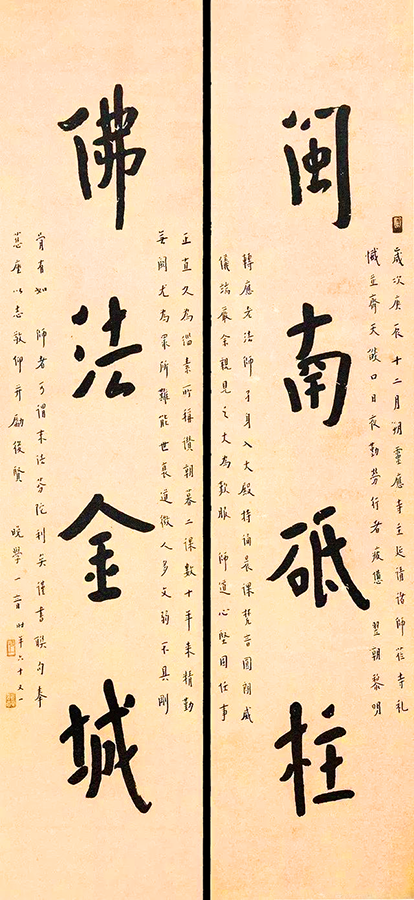 歲次庚辰十二月朔靈應寺主延請諸師蒞寺礼
懺並齋天燄口日夜勤勞行者疲憊翌朝黎明
閩南砥柱
轉應老法師孑身入大殿持誦晨課梵音圓朗威
儀端嚴余親見之大為歎服 師道心堅固任事
正直久為淄素所稱讚朝暮二課數十年來精勤
無間尤為眾所難能世衰道微人多文弱不具剛
佛法金城
骨有如 師者可謂末法芬陀利矣謹書聯句奉
慧座以志敬仰并勵後賢 晚學一音時年六十又一